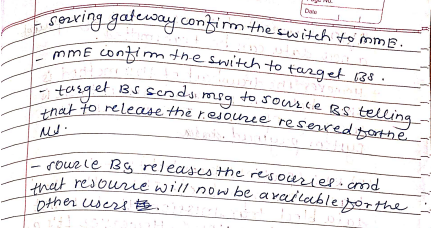 Page No.
Date
- serving gateway confirm the switch to MME.
- MME confirm the switch to target BS.
- target BS sends msg to source BS telling
that to release the resource reserved for the
MS.
- source BS releases the resources. and
that resource will now be available for the
other users